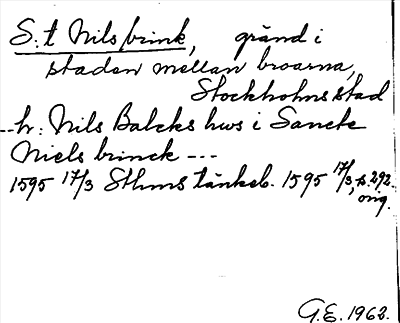 S:t Nilsbrink, gränd i
staden mellan broarna,
Stockholms stad
--hr: Nils Balcks hws i Sancte
Niels brinck ---
1595 17/3 Sthms tänkeb. 1595 17/3, s. 292.
orig.
G.E. 1962.